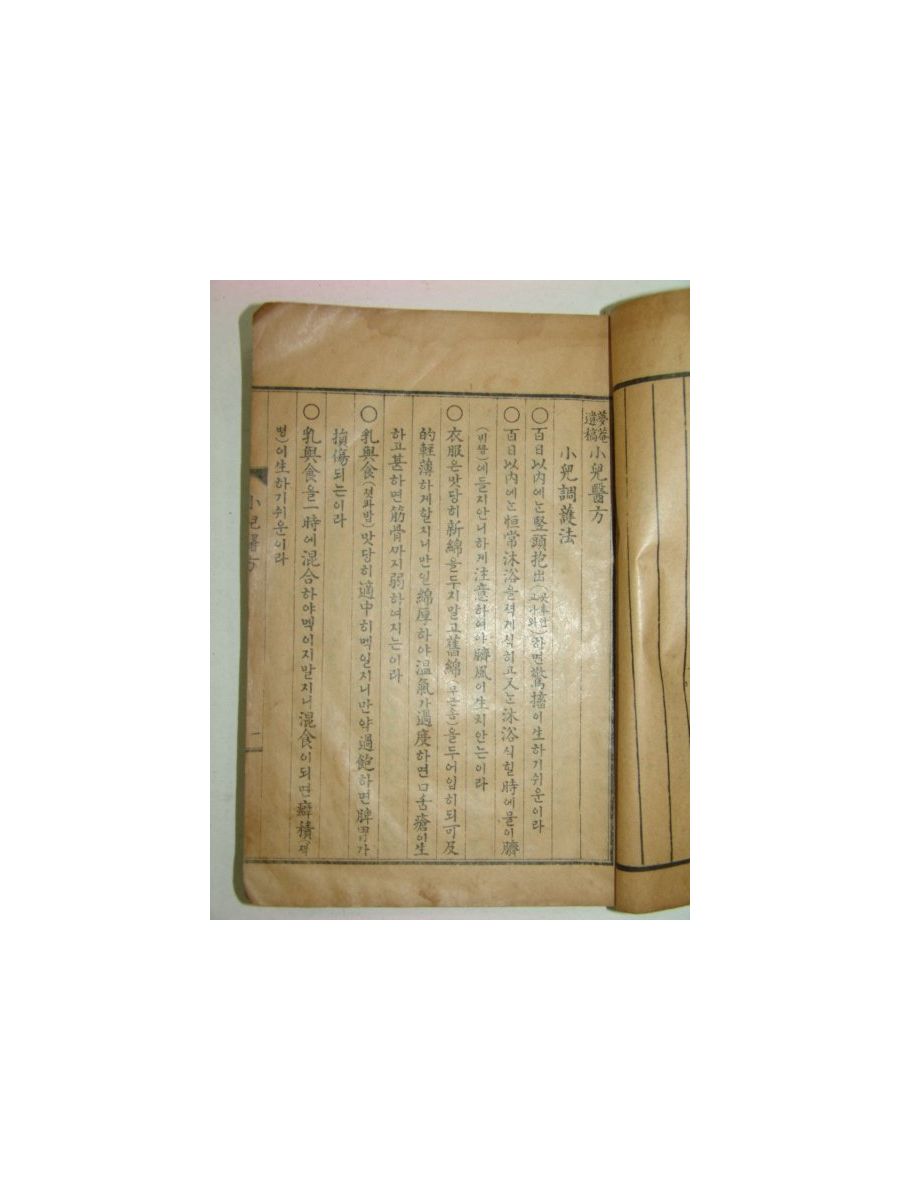 夢菴遺稿 小兒醫方
小兒調護法
○百日以內에는竪頭抱出(곳추안고나와)하면驚搐이生하기쉬운이라
○百日以內에는恒常沐浴을적게식히고又는沐浴식힐時에물이臍
에들지안니하게注意하여야臍風이生치안는이라
○衣服은맛당히新綿을두지말고舊綿(무근솜)을두어입히되可及
的輕薄하게할지니만일綿厚하야溫氣가過度하면口舌瘡이生
하고甚하면筋骨까지弱하여지는이라
○乳與食(젓과밥)맛당히適中히멕일지니만약過飽하면脾胃가
損傷되는이라
○乳與食을一時에混合하야멕이지말지니混食이되면癖積(적
병)이生하기쉬운이라
小兒醫方 一